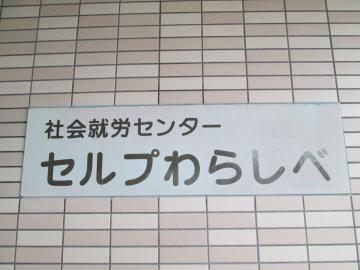 社会就労センター
セルプわらしべ